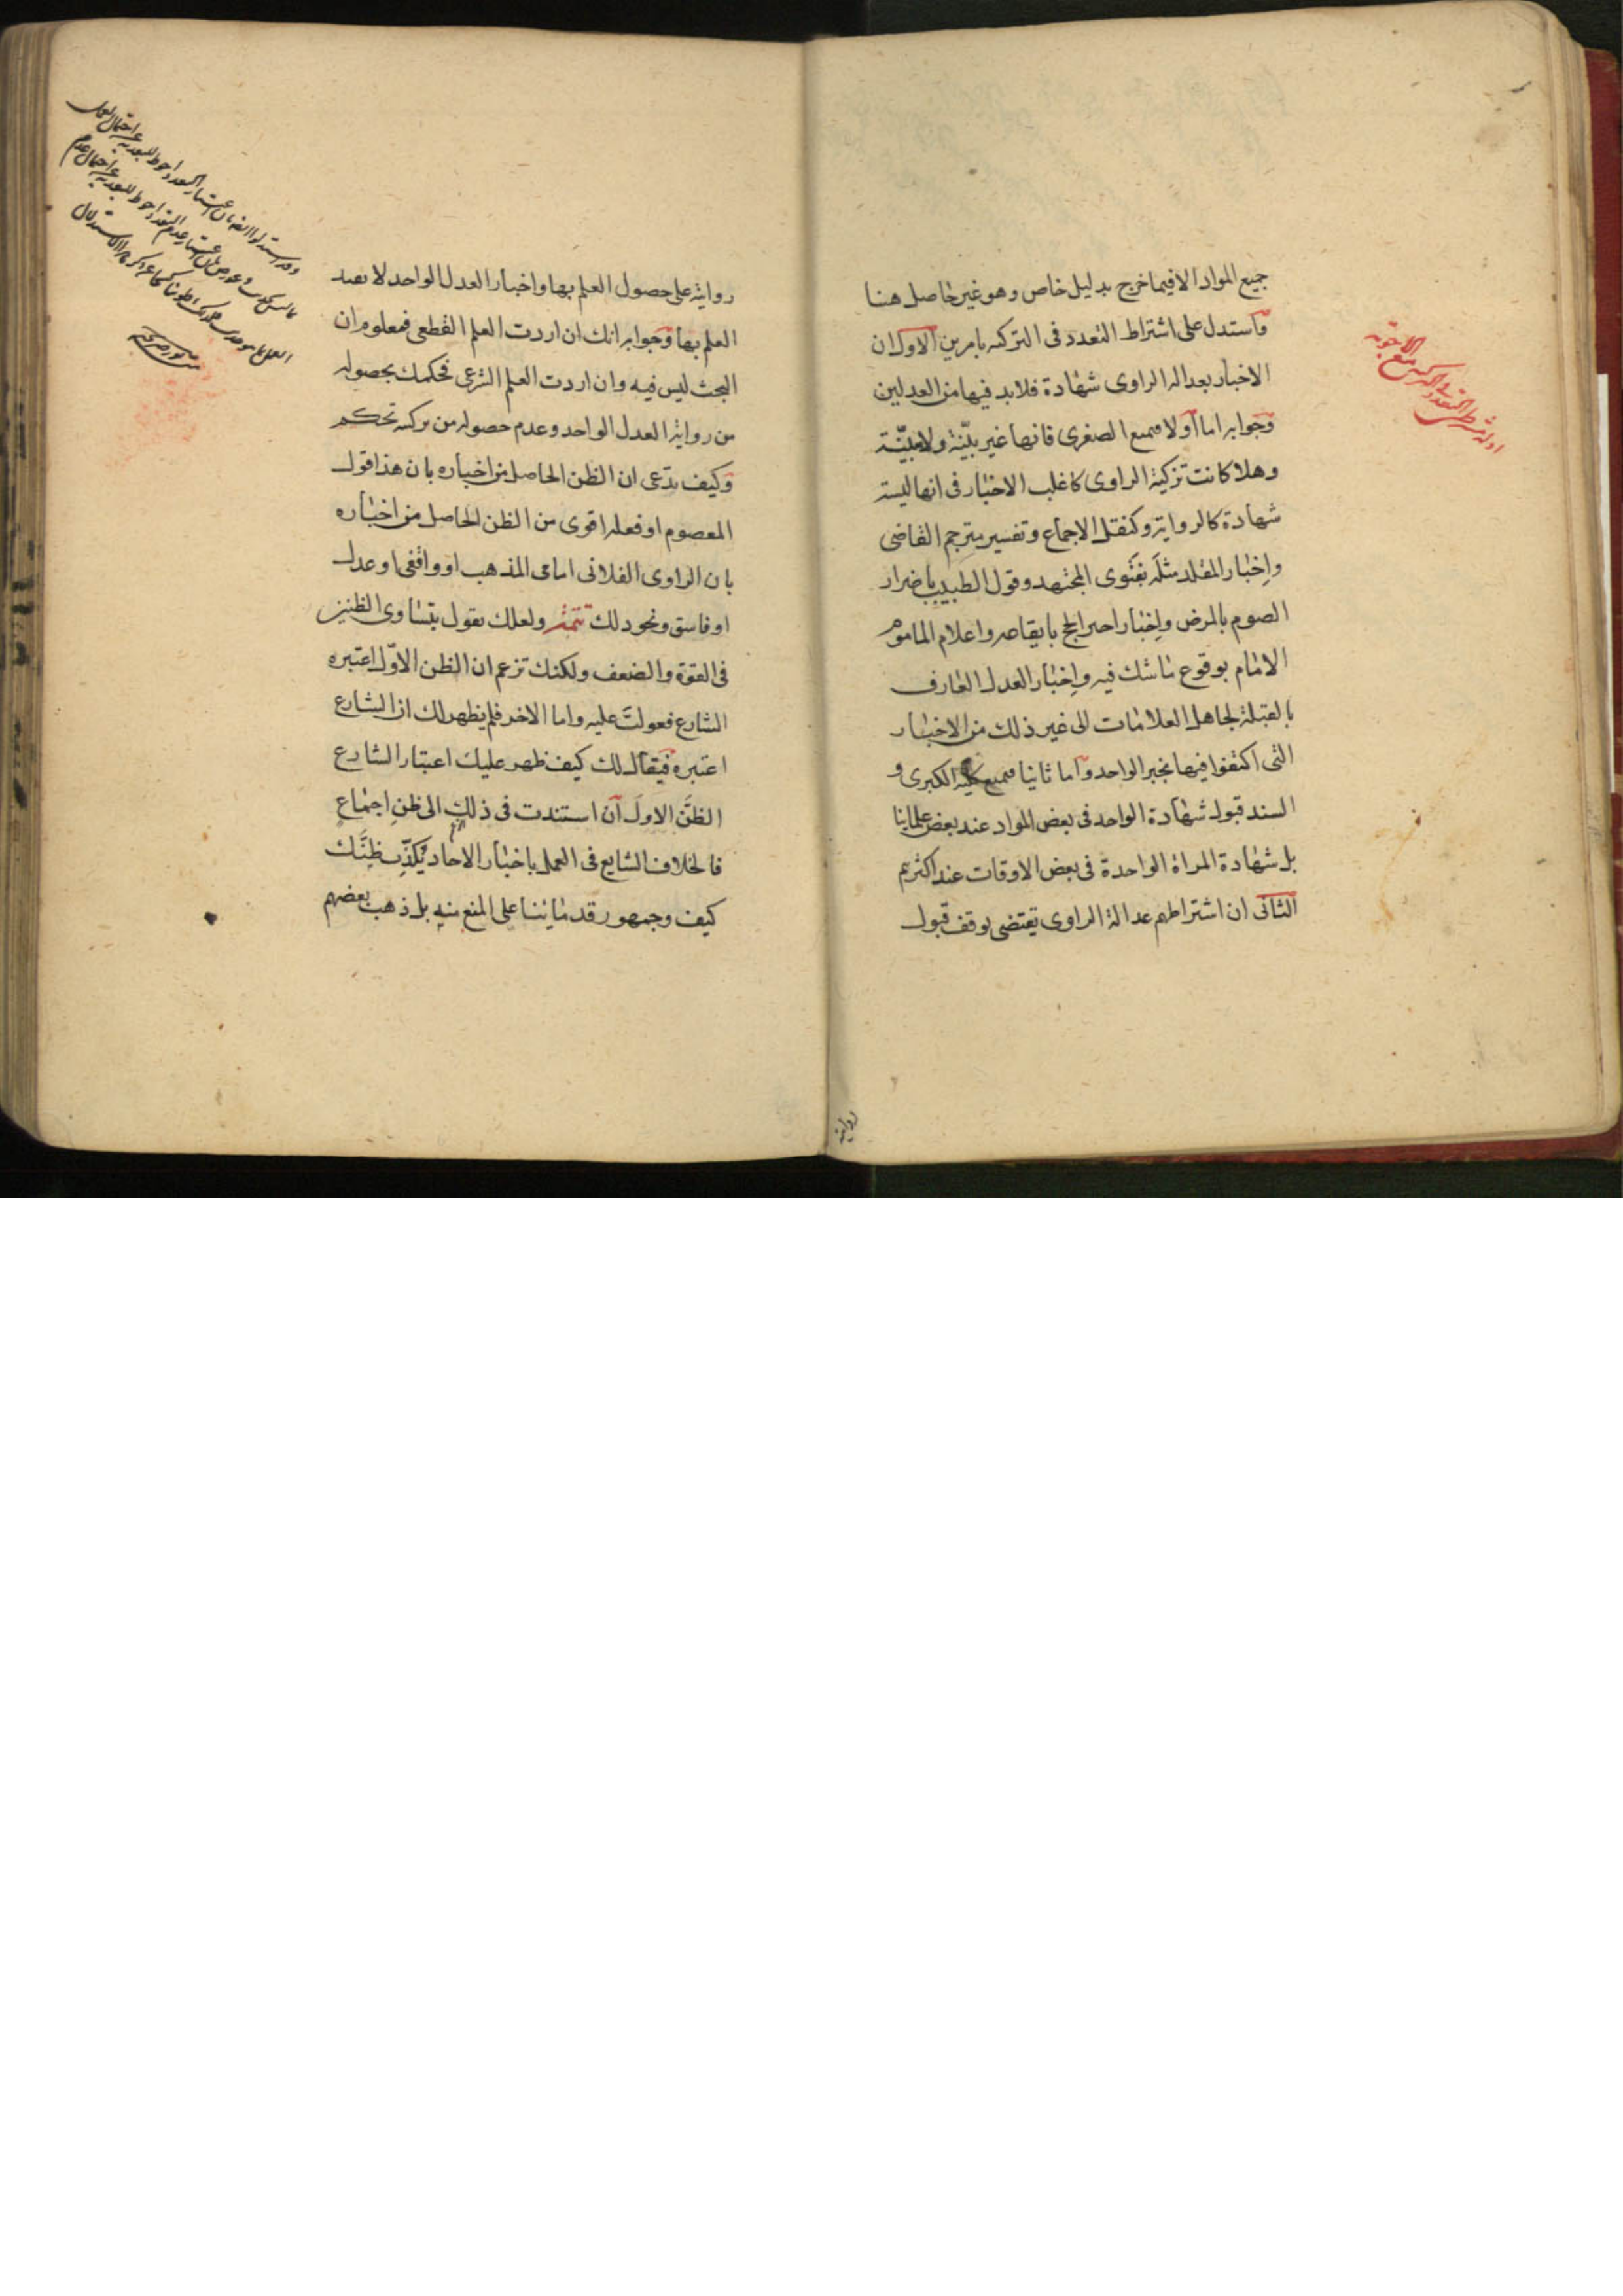 جميع المواد الا فيما خرج بدليل خاص وهو غير حاصل هنا
واستدل على اشتراط التعدد فى التزكيه بامرين الاول ان
الاخبار بعداله الراوى شهادة فلابد فيها من العدلين
وجوابه اما اولا فبمنع الصغرى فانها غير بيّنة ولا مبيّنة
وهلا كانت تزكية الراوى كاغلب الاخبار فى انها ليست
شهادة كالرواية وكنقل الاجماع وتفسير مترجم القاضى
واِخبار المقلد مثلَه بفتوى المجتهد وقول الطبيب باضرار
الصوم بالمرض واِخبار اجير الحج بايقاعه واعلام الماموم
الامام بوقوع ما شك فيه واِخبار العدل العارف
بالقبلة لجاهل العلامات الى غير ذلك من الاخبار
التى اكتفوا فيها بخبر الواحد واما ثانيا فبمنع كلية الكبرى و
السند قبول شهادة الواحد فى بعض المواد عند بعض علمائنا
بل شهادة المراة الواحدة فى بعض الاوقات عند اكثرهم
الثانى ان اشتراطهم عدالة الراوى يقتضى توقف قبول
ادلة شرط التعدد فى التزكية مع الاجوبة
روايته
روايته على حصول العلم بها واخبار العدل الواحد لا يفيد
العلم بها وجوابه انك ان اردت العلم القطعى فمعلوم ان
البحث ليس فيه وان اردت العلم الشرعى فحكمك بحصوله
من رواية العدل الواحد وعدم حصوله من تزكيته تحكم
وكيف يدّعى ان الظن الحاصل من اخباره بان هذا قول
المعصوم او فعله اقوى من الظن الحاصل من اخباره
بان الراوى الفلانى امامى المذهب او واقفى او عدل
او فاسق ونحو ذلك تتمة ولعلك تقول بتساوى الظنين
فى القوة والضعف ولكنك تزعم ان الظن الاوّل اعتبره
الشارع فعولتَ عليه واما الاخر فلم يظهر لك ان الشارع
اعتبره فيقال لك كيف ظهر عليك اعتبار الشارع
الظنَّ الاولَ ان استندت فى ذلك الى ظنِ اجماع
فالخلاف الشايع فى العمل باخبار الاحاد يُكذِّب ظنَّك
كيف وجمهور قدمائنا على المنع منه بل ذهب بعضهم